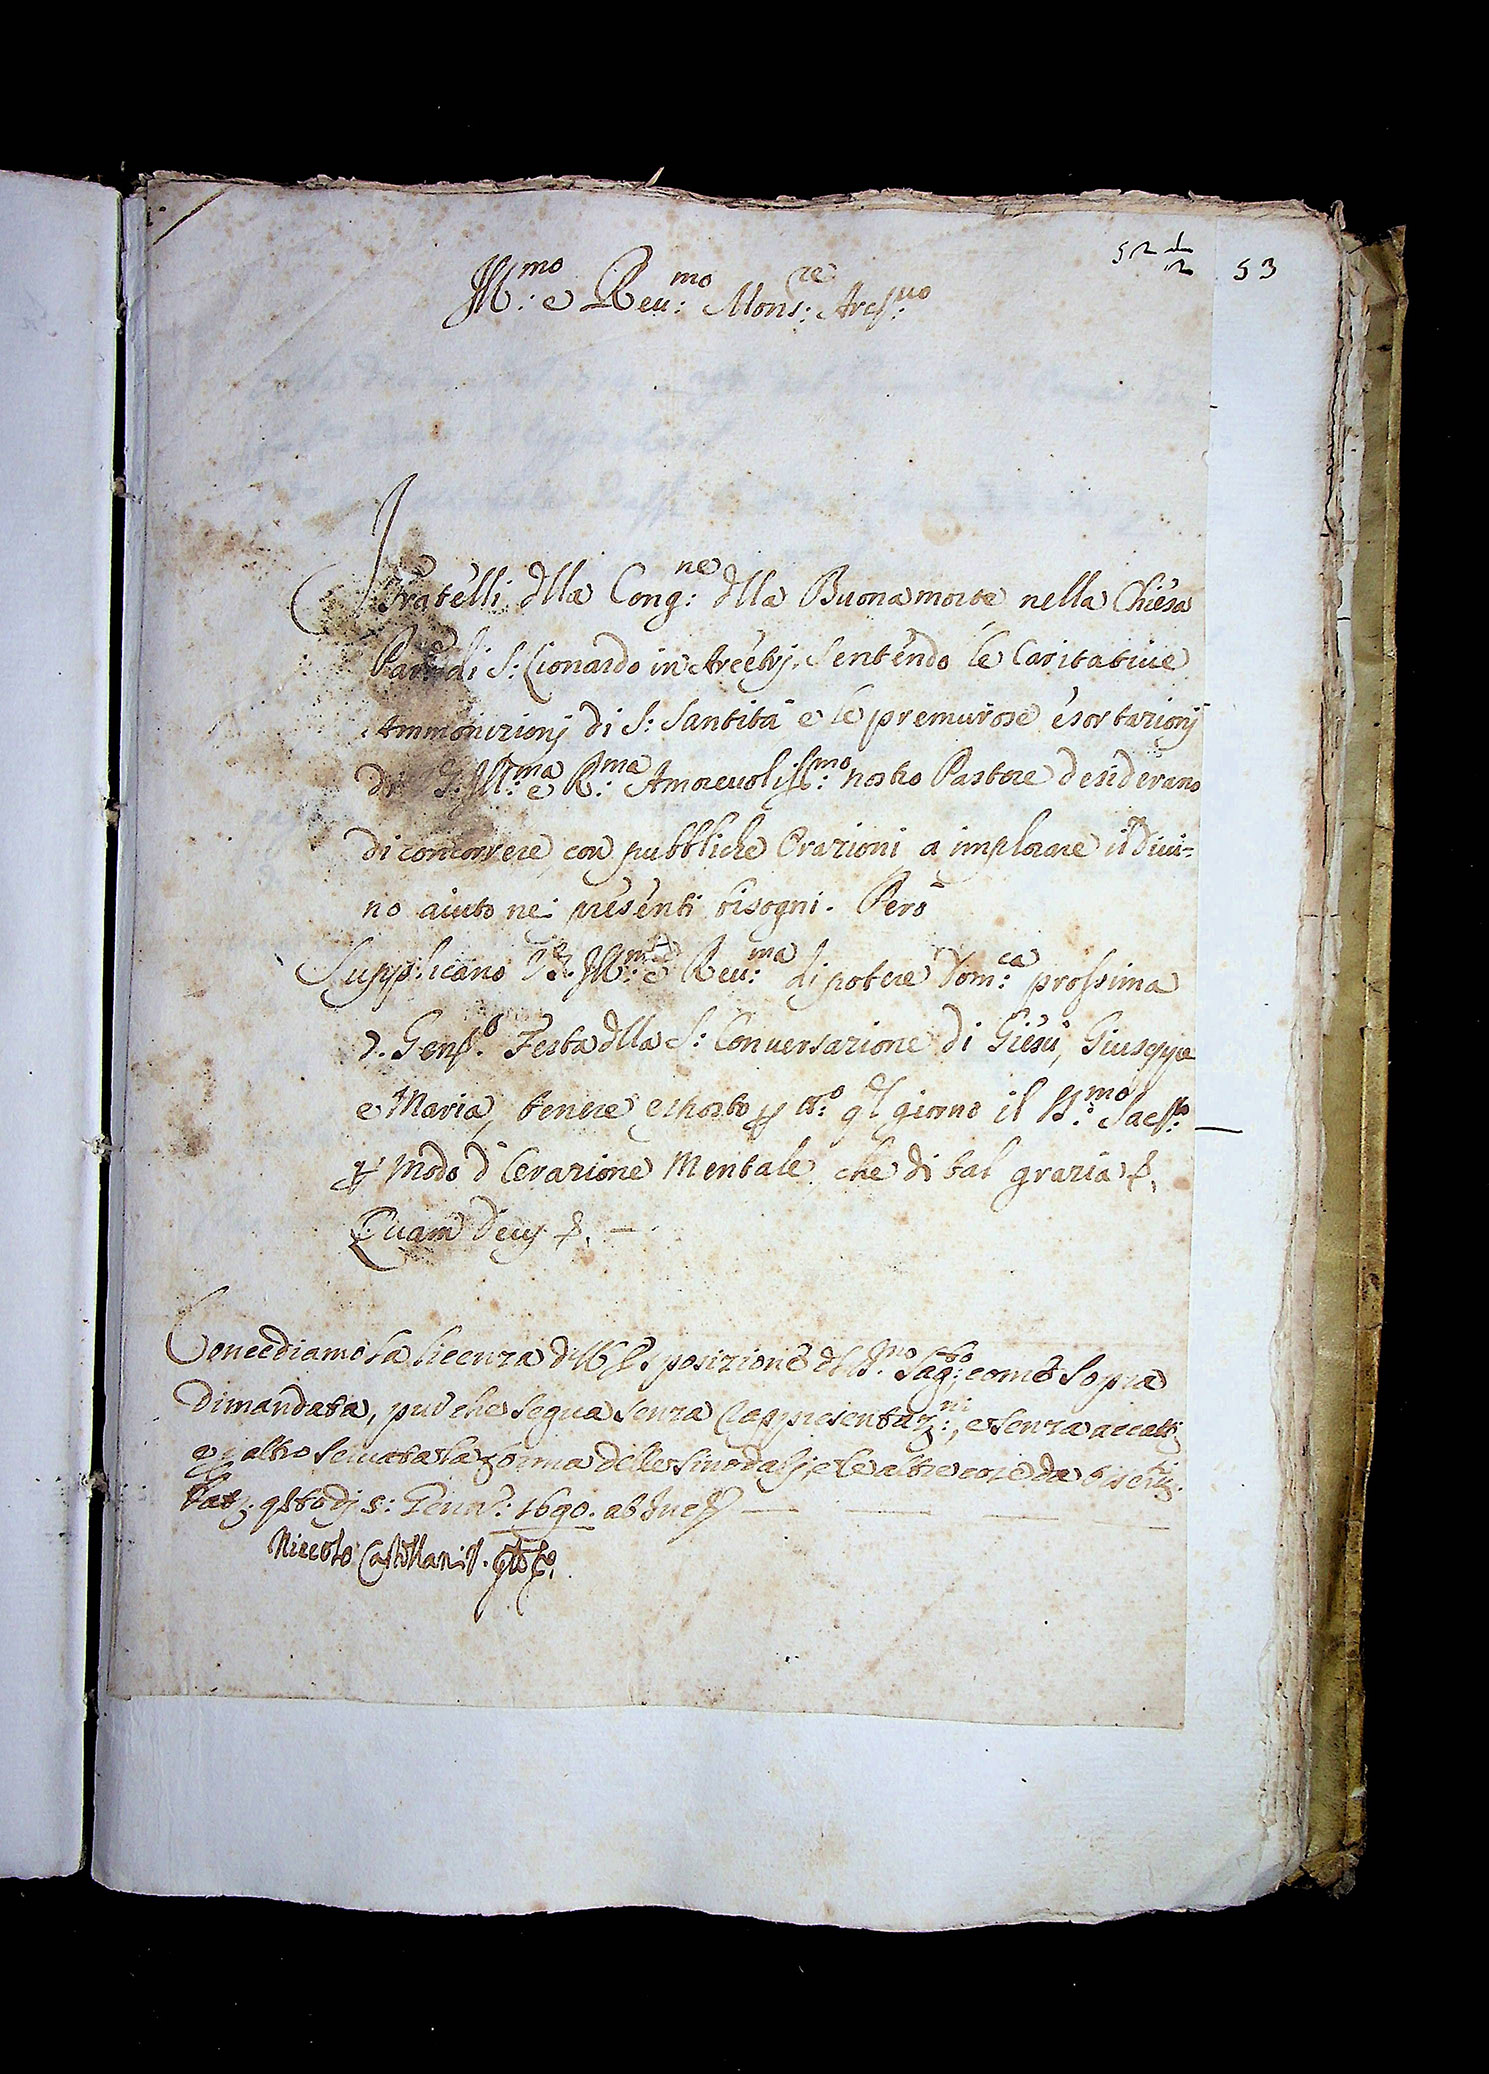 52 1/2 53
Ill:mo e Reu:mo Mons:re Arcs:uo
I Fratelli dlla Cong:ne dlla Buona morte nella Chiesa
Par: di S: Lionardo in Arcetrj, Sentendo le Caritatiue
Ammonizionj di S: Santità e le premurose esortazionj
di V.S. Ill:ma e R:ma Amoreuoliss:mo nostro Pastore desiderano
di concorrere con pubbliche Orazioni a implorare il Diui=
no aiuto nei presenti bisogni. Però
Supplicano V.S. Ill:ma e Reu:ma di potere Dom:ca prossima
Genn.o Festa dlla S: Conuersazione di Giesù, Giuseppe
e Maria, tenere esposto tt:o ql giorno il SS:mo Sacr:to
modo d'Orazione Mentale che di tal grazia &.
Quam Deus &. —
Concediamo la licenza dell'Esposizione del SS.mo Sag:to, come sopra
dimandata, purche segua senza Rappresentaz:ni, e senza accatti
e altro seruata la forma delle Sinodalj, e le altre cose da
Dat. 5: Genn:o 1690. ab Inc.
Niccolò Castellani